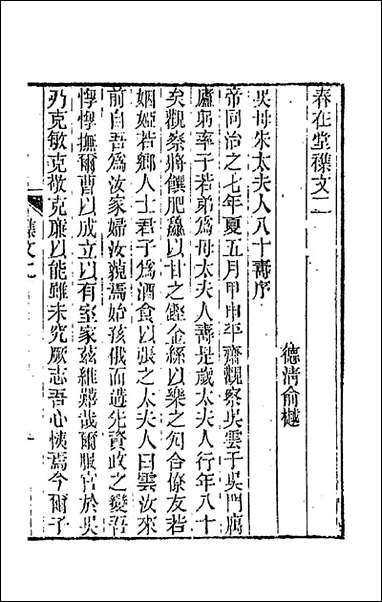 春在堂襍文二
德清俞樾
吳母朱太夫人八十壽序
帝同治之七年夏五月甲申平齋觀察吳雲于吳門寓
廬躬率子若弟爲母太夫人壽是歲太夫人行年八十
矣觀察將饌肥鱻以甘之鏗金絲以樂之勼合僚友若
姻婭若鄉人士君子爲酒食以張之太夫人曰雲汝來
前自吾爲汝家婦汝藐焉始孩俄而遘先資政之變吾
惸惸撫爾曹以成立以有室家茲維艱哉爾服官於吳
乃克敏克敬克廉以能雖未究厥志吾心恔焉今爾子
襍文二
一